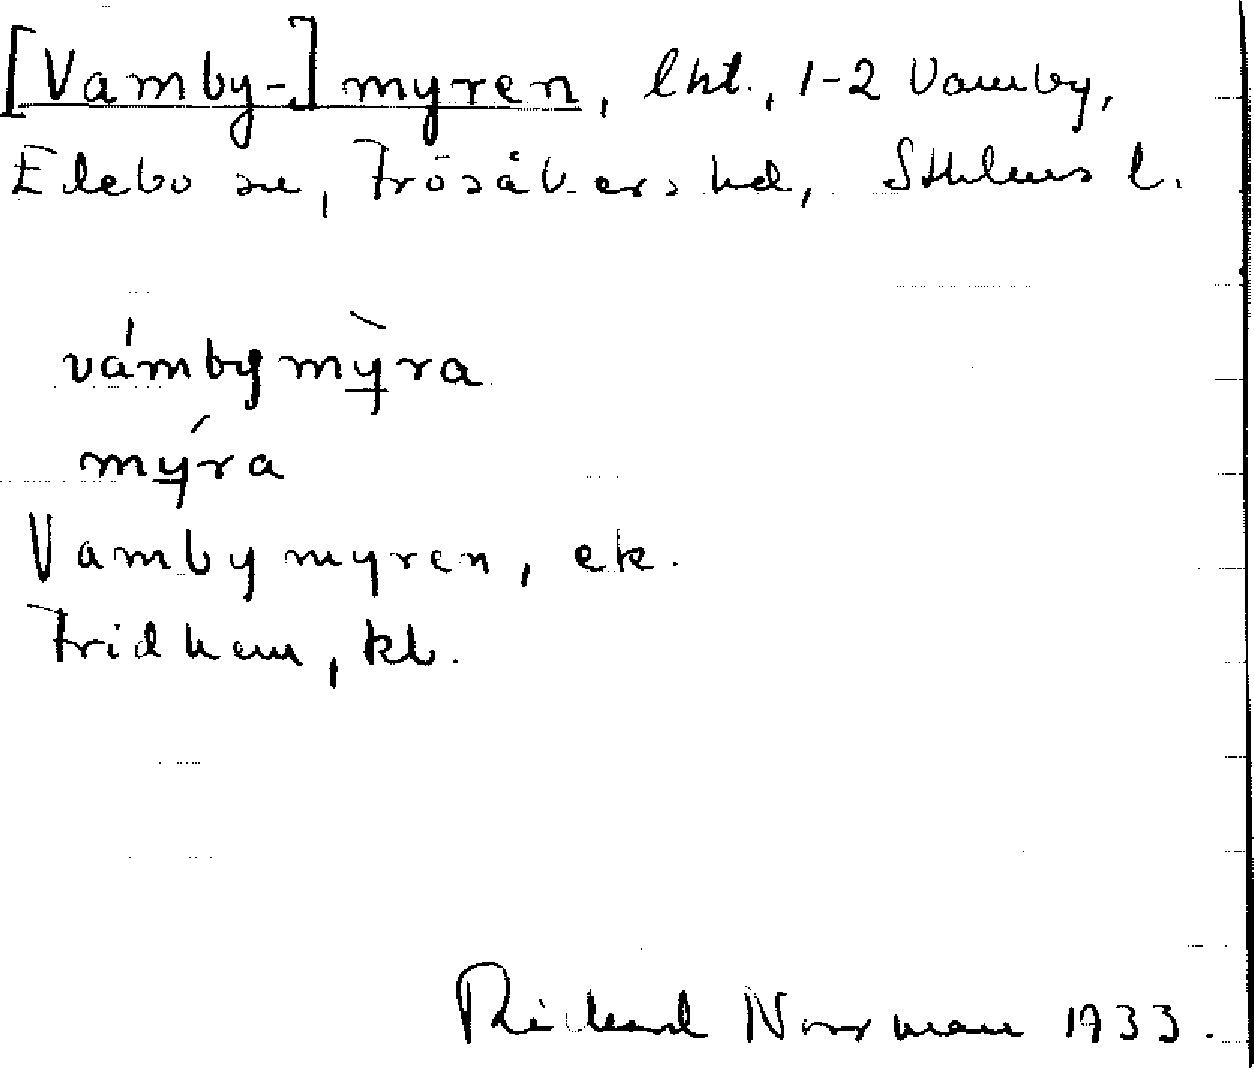 [Vamby-] myren, lht., 1-2 Vamby,
Elebo sn, Frösåkers hd, Sthlms l.
vámbymỳra
mýra
Vambymyren, ek.
Fridhem, kb.
Rickard Norrman 1933.